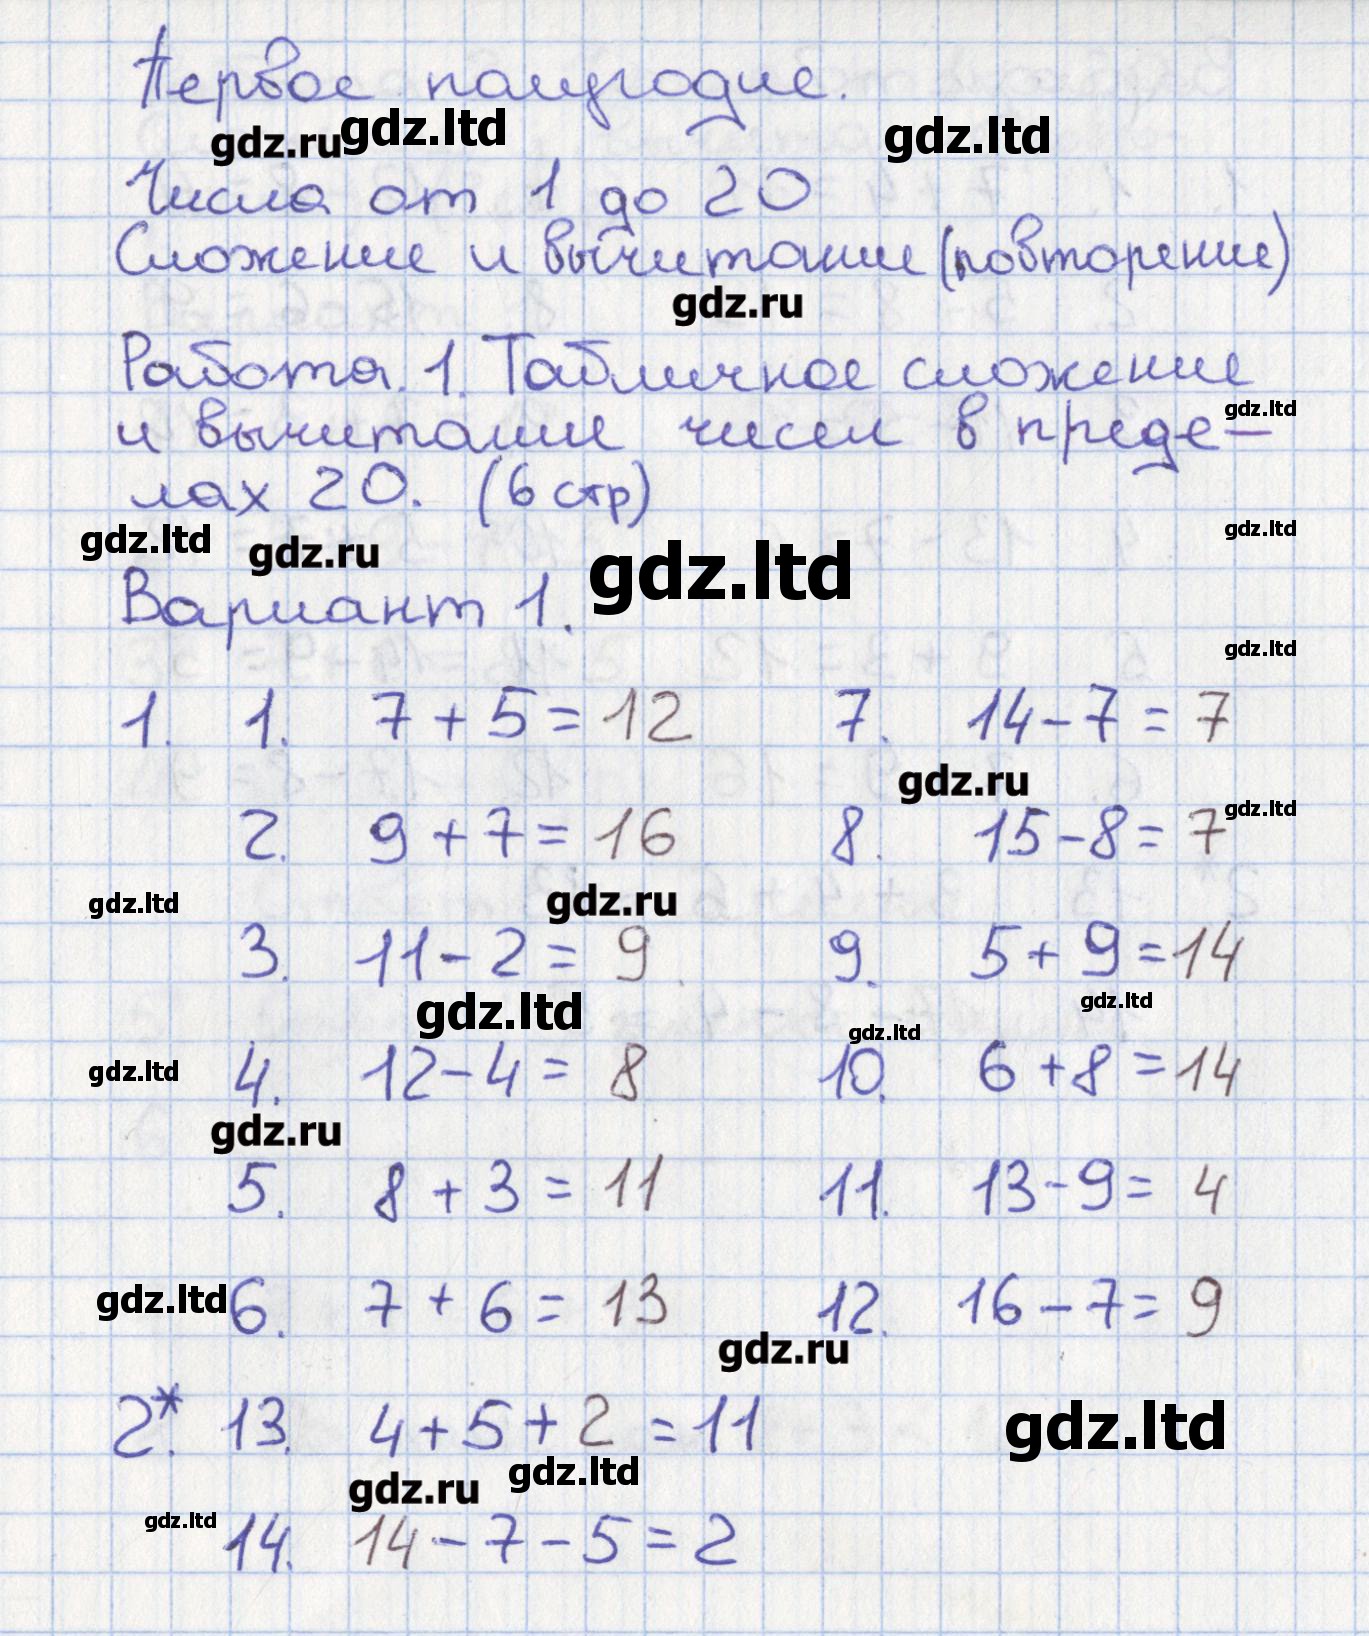 Первое полугодие.
gdz.ru gdz.ltd gdz.ltd
Числа от 1 до 20
Сложение и вычитание (повторение)
gdz.ru
Работа 1. Табличное сложение
и вычитание чисел в преде-
gdz.ltd
лах 20. (6 стр)
gdz.ltd gdz.ru gdz.ltd gdz.ltd
Вариант 1.
gdz.ltd
1. 1. 7 + 5 = 12 7. 14 - 7 = 7
gdz.ru
2. 9 + 7 = 16 8. 15 - 8 = 7 gdz.ltd
gdz.ltd gdz.ru
3. 11 - 2 = 9 9. 5 + 9 = 14
gdz.ltd gdz.ltd
gdz.ltd
gdz.ltd 4. 12 - 4 = 8 10. 6 + 8 = 14
gdz.ru
5. 8 + 3 = 11 11. 13 - 9 = 4
gdz.ltd 6. 7 + 6 = 13 12. 16 - 7 = 9
gdz.ru
2.* 13. 4 + 5 + 2 = 11 gdz.ltd
gdz.ru gdz.ltd
gdz.ltd 14. 14 - 7 - 5 = 2